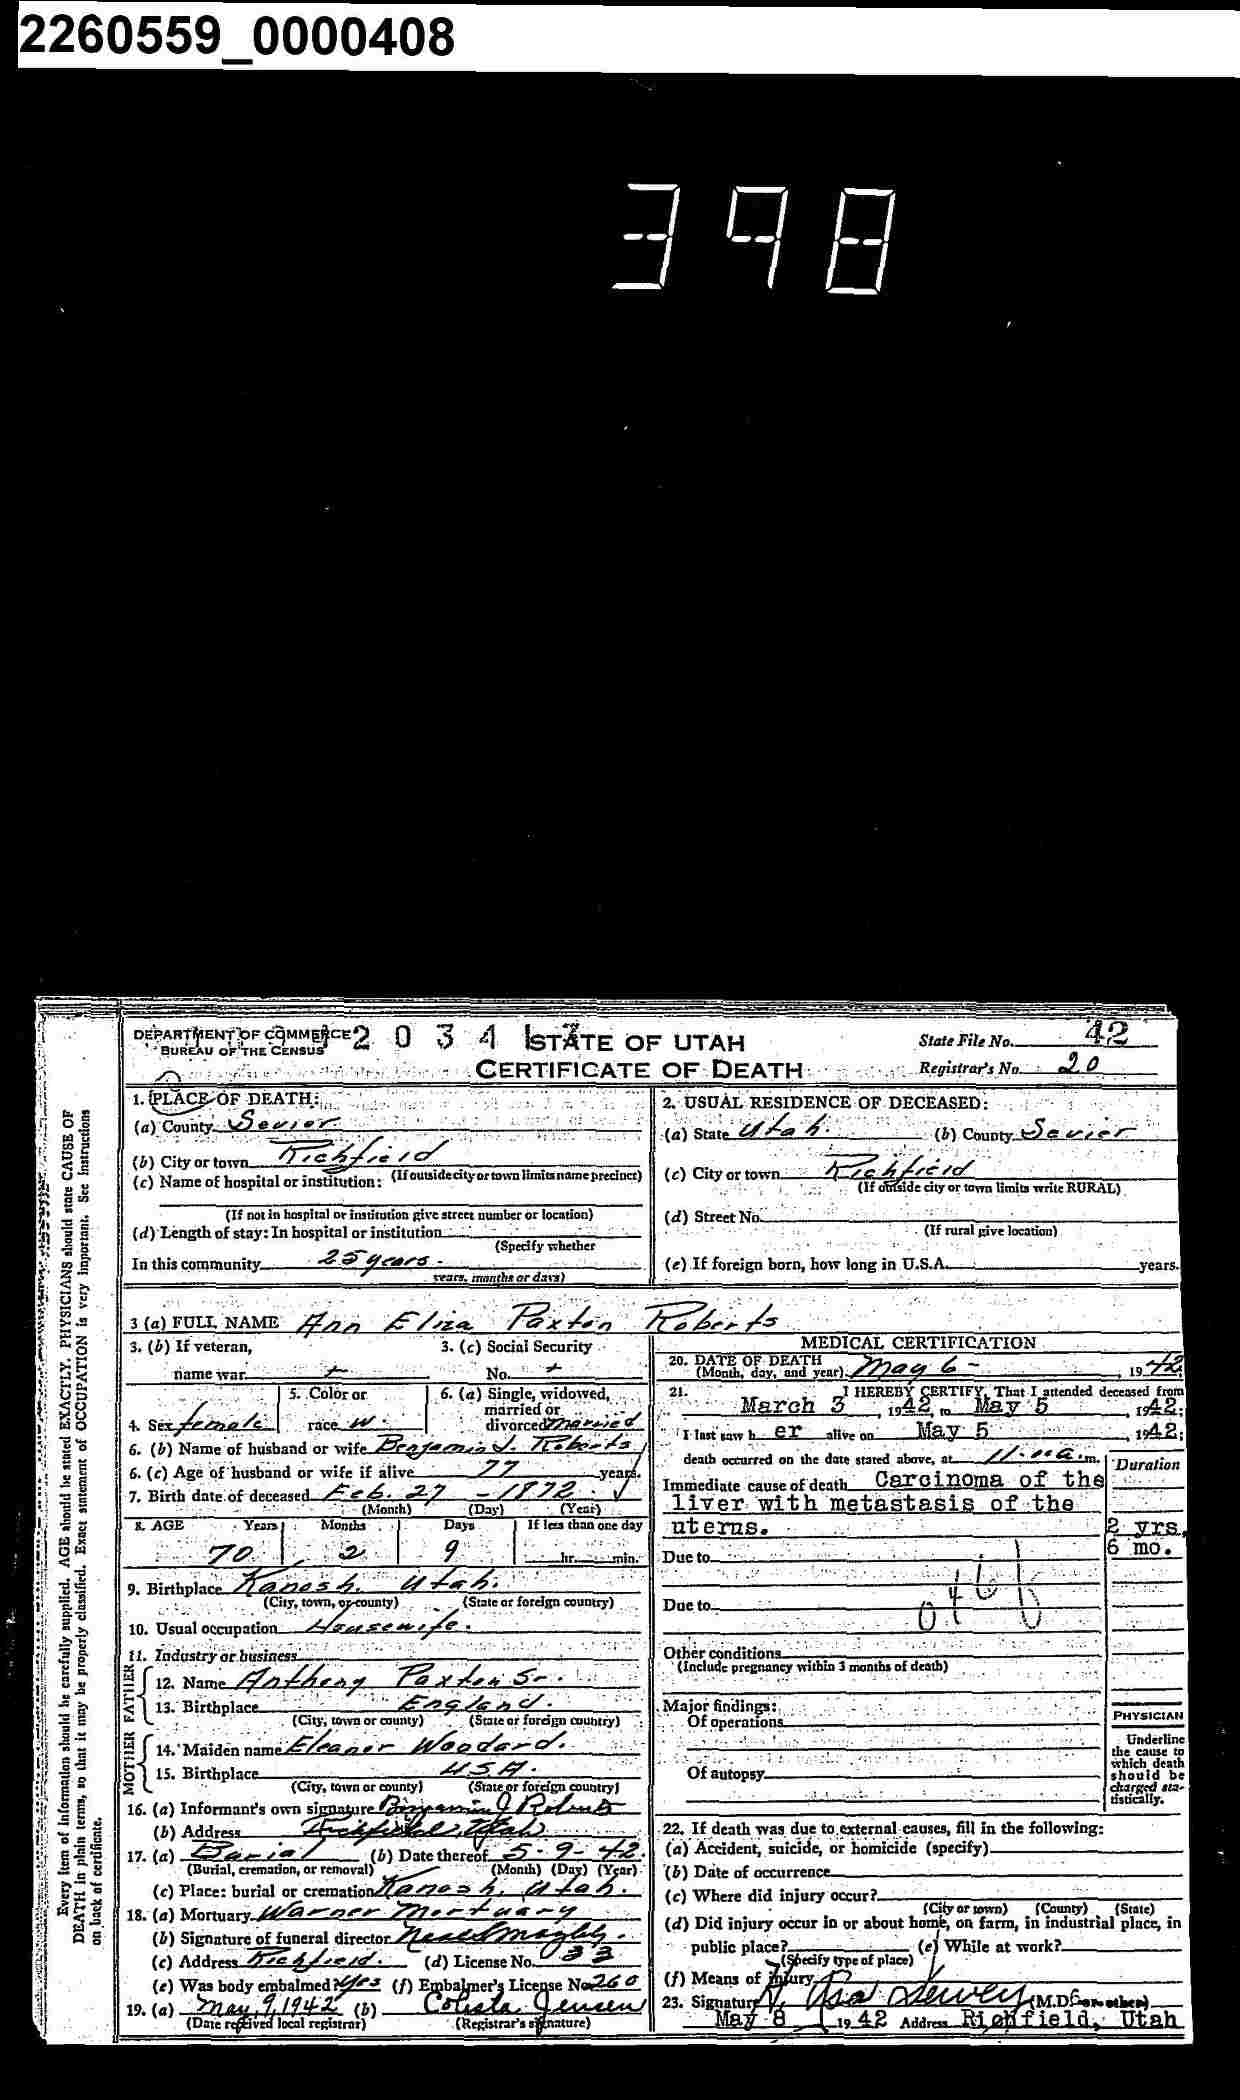 2260559_0000408
398
DEPARTMENT OF COMMERCE 2 0 3 4 STATE OF UTAH State File No. 42
BUREAU OF THE CENSUS CERTIFICATE OF DEATH Registrar's No. 20
Every item of Information should be carefully supplied. AGE should be stated EXACTLY. PHYSICIANS should state CAUSE OF
DEATH in plain terms, so that it may be properly classified. Exact statement of OCCUPATION is very important. See Instructions
on back of certificate.
1. PLACE OF DEATH:
(a) County Sevier
(b) City or town Richfield
(If outside city or town limits name precinct)
(c) Name of hospital or institution:
(If not in hospital or institution give street number or location)
(d) Length of stay: In hospital or institution
(Specify whether
In this community 25 years.
years, months or days)
2. USUAL RESIDENCE OF DECEASED:
(a) State Utah. (b) County Sevier
(c) City or town Richfield
(If outside city or town limits write RURAL)
(d) Street No.
(If rural give location)
(e) If foreign born, how long in U.S.A. years.
3 (a) FULL NAME Ann Eliza Paxton Roberts
3. (b) If veteran, 3. (c) Social Security
name war + No. +
4. Sex female 5. Color or race w. 6. (a) Single, widowed, married or divorced married
6. (b) Name of husband or wife Benjamin J. Roberts
6. (c) Age of husband or wife if alive 77 years.
7. Birth date of deceased Feb. 27 - 1872
(Month) (Day) (Year)
8. AGE Years Months Days If less than one day
70 2 9 hr. min.
9. Birthplace Kanosh. Utah.
(City, town, or county) (State or foreign country)
10. Usual occupation Housewife.
11. Industry or business
FATHER
12. Name Anthony Paxton Sr.
13. Birthplace England.
(City, town or county) (State or foreign country)
MOTHER
14. Maiden name Eleanor Woodard.
15. Birthplace USA.
(City, town or county) (State or foreign country)
16. (a) Informant's own signature Benjamin J Roberts
(b) Address Richfield, Utah
17. (a) Burial (b) Date thereof 5-9-42.
(Burial, cremation, or removal) (Month) (Day) (Year)
(c) Place: burial or cremation Kanosh, Utah.
18. (a) Mortuary Warner Mortuary
(b) Signature of funeral director
(c) Address Richfield. (d) License No. 33
(e) Was body embalmed? Yes (f) Embalmer's License No. 260
19. (a) May, 9, 1942 (b) Colista Jensen
(Date received local registrar) (Registrar's signature)
MEDICAL CERTIFICATION
20. DATE OF DEATH
(Month, day, and year) May 6 - , 19 42
21. I HEREBY CERTIFY, That I attended deceased from
March 3 , 1942, to May 5 , 1942;
I last saw h er alive on May 5 , 1942;
death occurred on the date stated above, at 11:00 a. m. Duration
Immediate cause of death Carcinoma of the
liver with metastasis of the
uterus. 2 yrs,
Due to 6 mo.
Due to
Other conditions
(Include pregnancy within 3 months of death)
Major findings:
Of operations
PHYSICIAN
Underline
the cause to
which death
should be
charged sta-
tistically.
Of autopsy
22. If death was due to external causes, fill in the following:
(a) Accident, suicide, or homicide (specify)
(b) Date of occurrence
(c) Where did injury occur?
(City or town) (County) (State)
(d) Did injury occur in or about home, on farm, in industrial place, in
public place? (e) While at work?
(Specify type of place)
(f) Means of injury
23. Signature Asa Dewey (M.D. or other)
May 8 19 42 Address Richfield, Utah